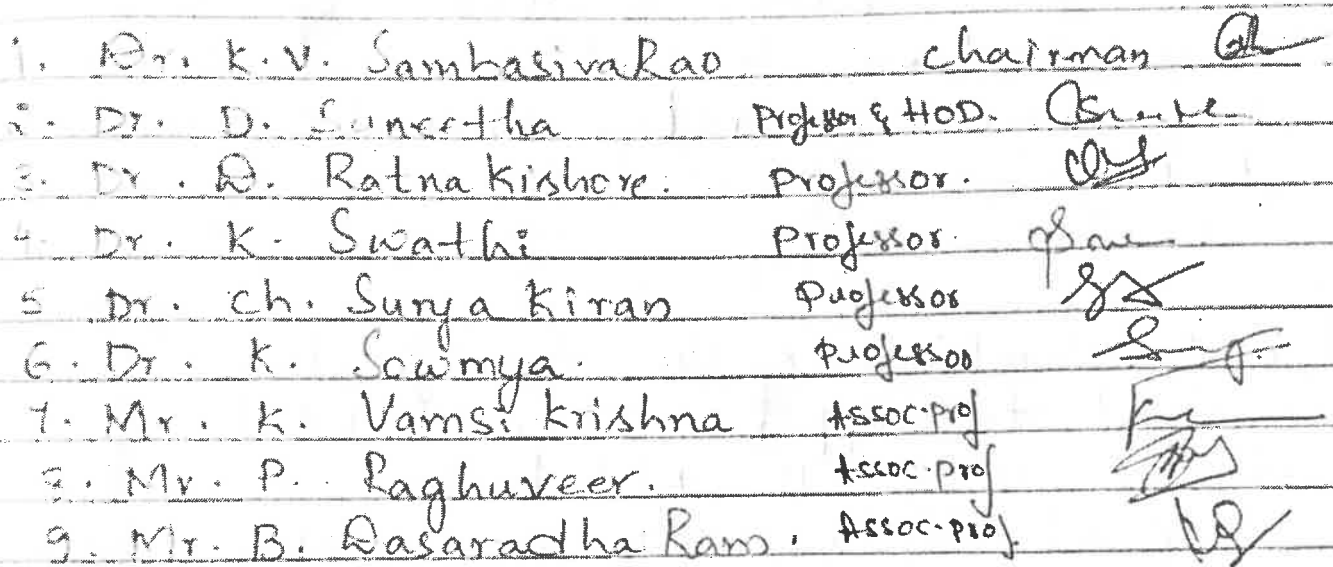 1. Dr. K.V. SambasivaRao chairman
2. Dr. D. Suneetha Professor & HOD.
3. Dr. D. Ratna Kishore. Professor.
4. Dr. K. Swathi Professor
5 Dr. Ch. Surya Kiran Professor
6. Dr. K. Sowmya. Professor
7. Mr. K. Vamsi Krishna Assoc.prof
8. Mr. P. Raghuveer. Assoc.prof
9. Mr. B. Dasaradha Ram. Assoc.prof.